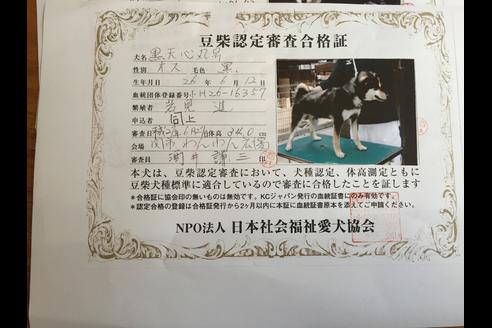 豆柴認定審査合格証
犬名 黒天心丸号
性別 オス 毛色 黒.
生年月日 26年 6月 12日
血統団体登録番号 小H26-16357
繁殖者 岩見 進
申込者 同上
審査日 年 月 日 体高 34.0 cm
会場 関市 わんわん広場
審査員 謙三 印
本犬は、豆柴認定審査において、犬種認定、体高測定ともに
豆柴犬種標準に適合しているので審査に合格したことを証します
*合格証に協会印の無いものは無効です。KCジャパン発行の血統証書にのみ有効です。
*認定合格の登録は合格証発行から2ヶ月以内に本証に血統証書原本を添えてご申請ください。
NPO法人 日本社会福祉愛犬協会